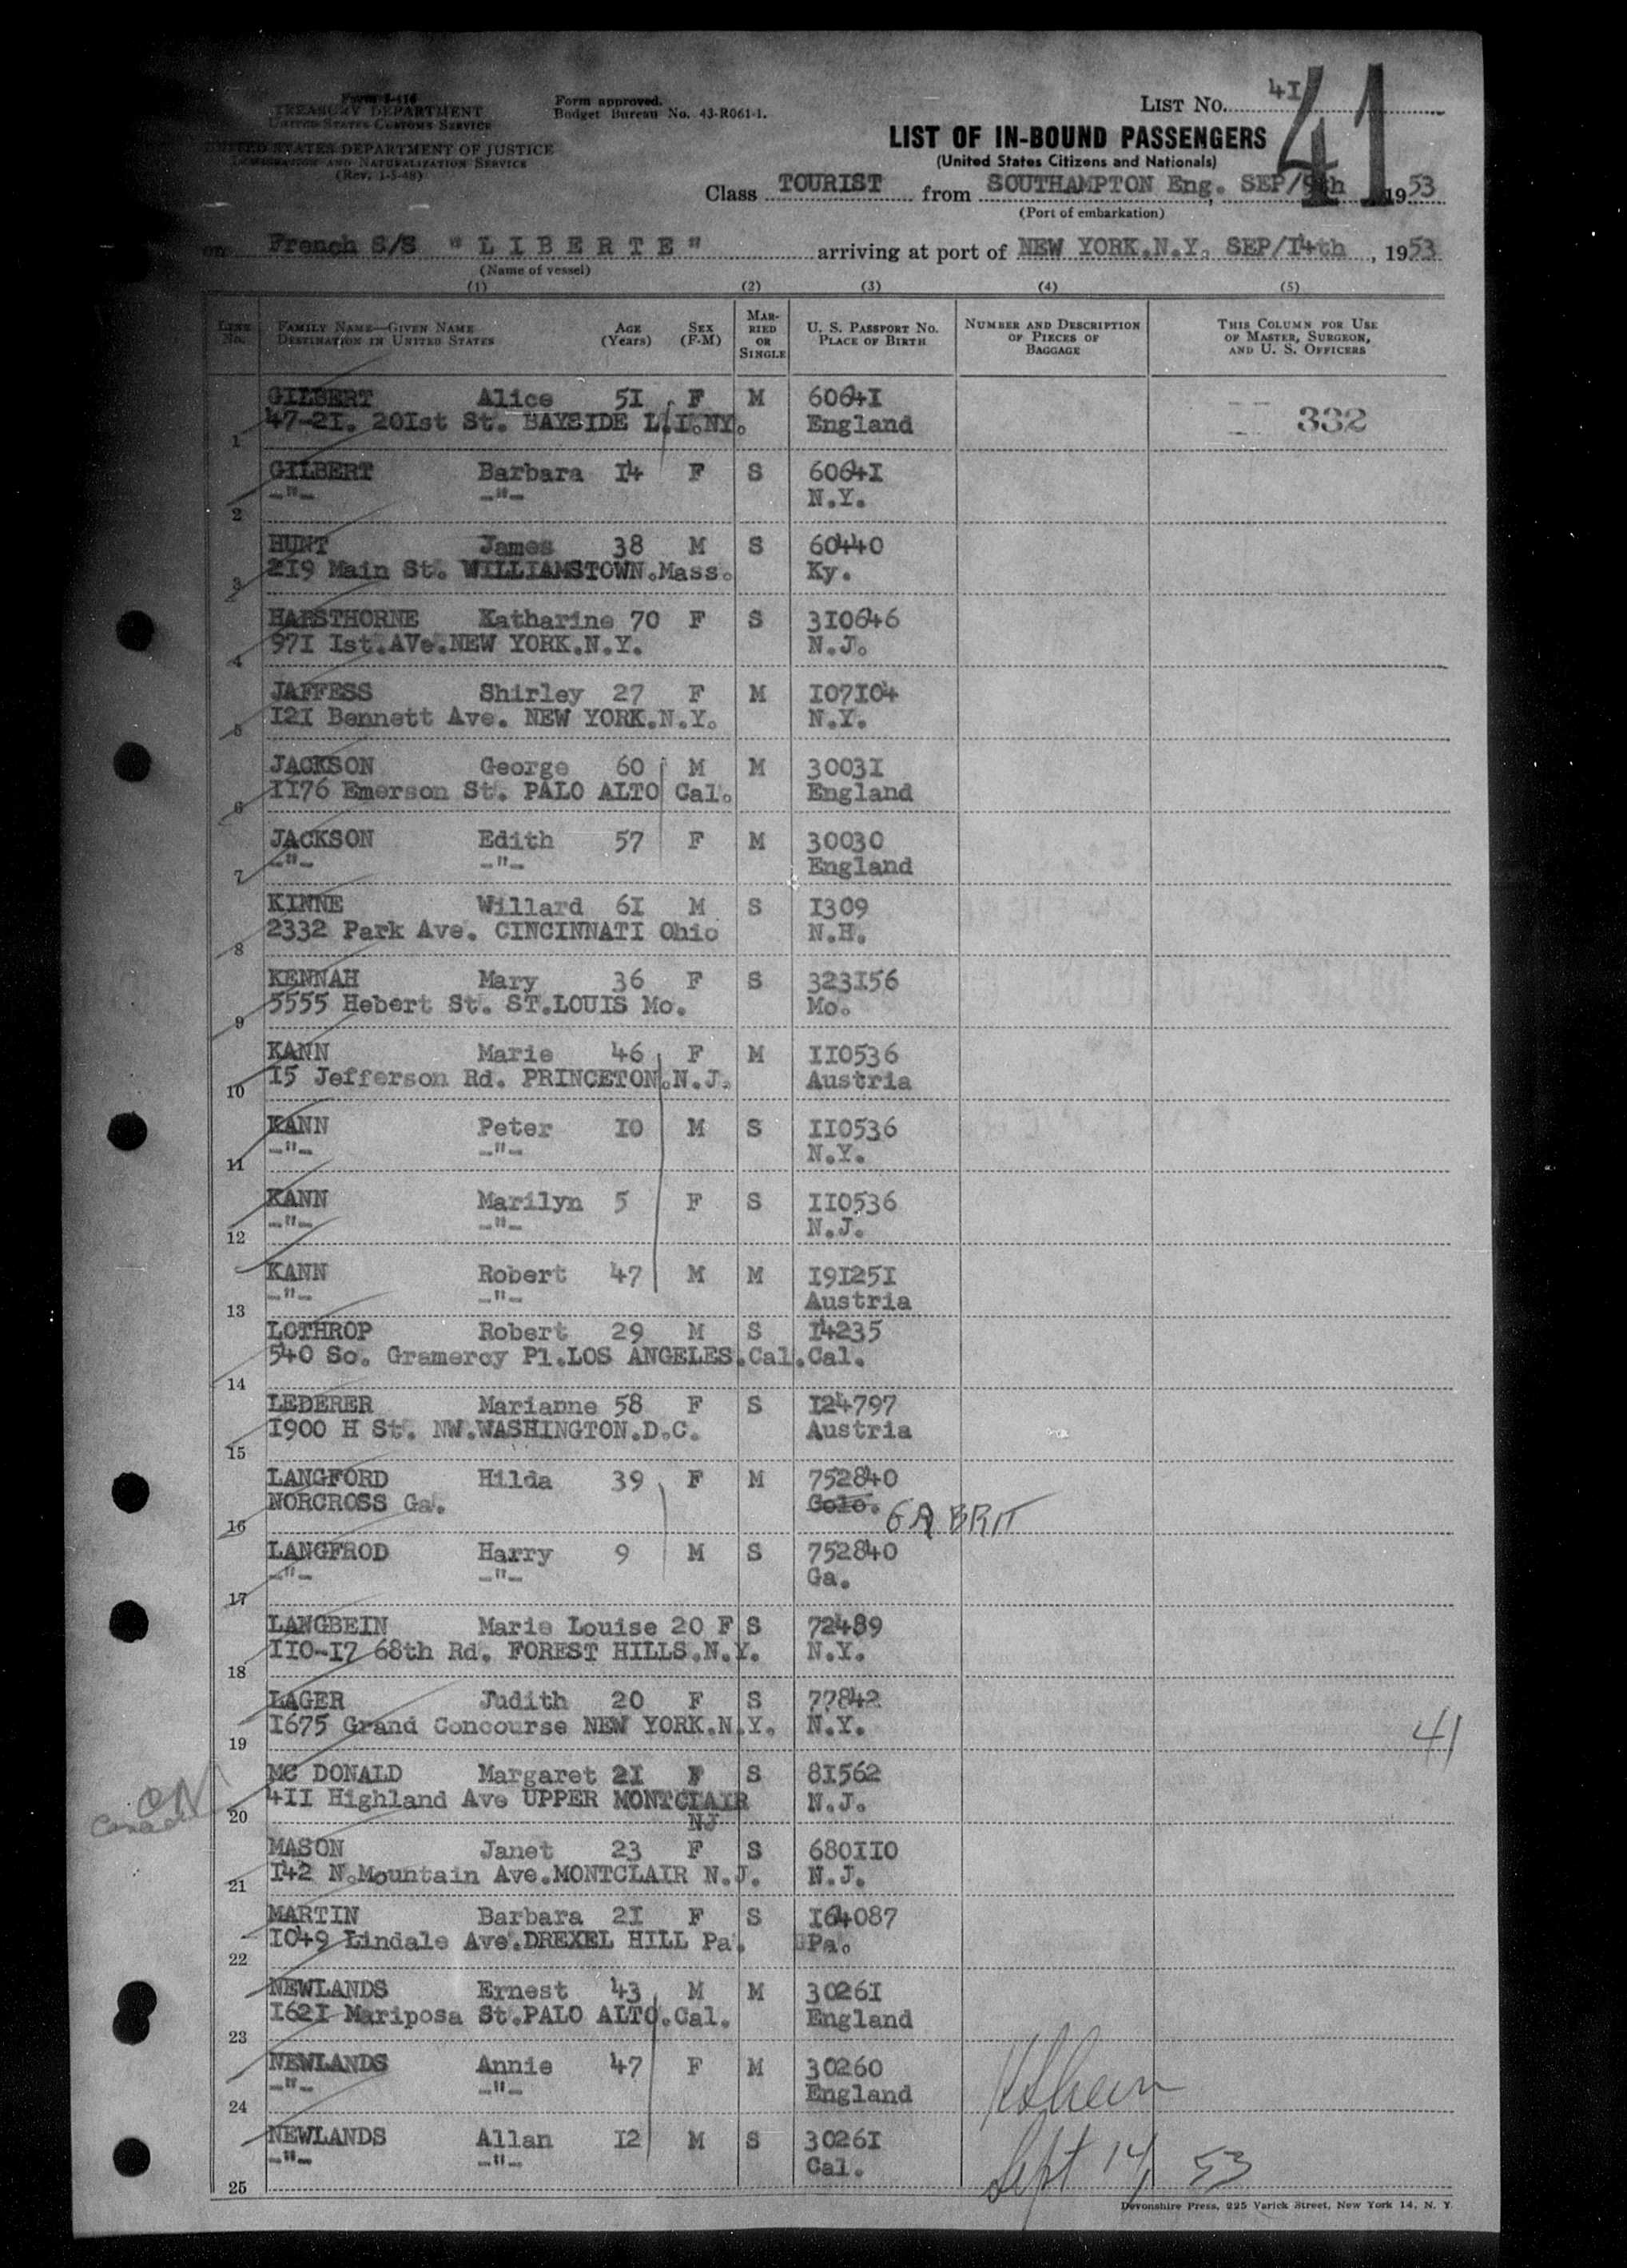 Form I-416
TREASURY DEPARTMENT
UNITED STATES CUSTOMS SERVICE
UNITED STATES DEPARTMENT OF JUSTICE
IMMIGRATION AND NATURALIZATION SERVICE
(Rev. 1-5-48)
Form approved.
Budget Bureau No. 43-R061-1.
LIST NO. 41
41
LIST OF IN-BOUND PASSENGERS
(United States Citizens and Nationals)
Class TOURIST from SOUTHAMPTON Eng. SEP/9th 1953
(Port of embarkation)
on French S/S "LIBERTE" arriving at port of NEW YORK.N.Y. SEP/14th, 1953
(Name of vessel)
(1) (2) (3) (4) (5)
LINE No. FAMILY NAME—GIVEN NAME DESTINATION IN UNITED STATES AGE (Years) SEX (F-M) MARRIED OR SINGLE U. S. PASSPORT NO. PLACE OF BIRTH NUMBER AND DESCRIPTION OF PIECES OF BAGGAGE THIS COLUMN FOR USE OF MASTER, SURGEON, AND U. S. OFFICERS
GILBERT Alice 51 F M 60641
47-21. 201st St. BAYSIDE L.I.NY. England 332
1
GILBERT Barbara 14 F S 60641
-"- -"- N.Y.
2
HUNT James 38 M S 60440
219 Main St. WILLIAMSTOWN.Mass. Ky.
3
HARSTHORNE Katharine 70 F S 310646
971 1st.AVe.NEW YORK.N.Y. N.J.
4
JAFFESS Shirley 27 F M 107104
121 Bennett Ave. NEW YORK.N.Y. N.Y.
5
JACKSON George 60 M M 30031
1176 Emerson St. PALO ALTO Cal. England
6
JACKSON Edith 57 F M 30030
-"- -"- England
7
KINNE Willard 61 M S 1309
2332 Park Ave. CINCINNATI Ohio N.H.
8
KENNAH Mary 36 F S 323156
5555 Hebert St. ST.LOUIS Mo. Mo.
9
KANN Marie 46 F M 110536
15 Jefferson Rd. PRINCETON.N.J. Austria
10
KANN Peter 10 M S 110536
-"- -"- N.Y.
11
KANN Marilyn 5 F S 110536
-"- -"- N.J.
12
KANN Robert 47 M M 191251
-"- -"- Austria
13
LOTHROP Robert 29 M S 14235
540 So. Gramercy Pl.LOS ANGELES.Cal. Cal.
14
LEDERER Marianne 58 F S 124797
1900 H St. NW.WASHINGTON.D.C. Austria
15
LANGFORD Hilda 39 F M 752840
NORCROSS Ga. Colo. GR BRIT
16
LANGFROD Harry 9 M S 752840
-"- -"- Ga.
17
LANGBEIN Marie Louise 20 F S 72489
110-17 68th Rd. FOREST HILLS.N.Y. N.Y.
18
LAGER Judith 20 F S 77842
1675 Grand Concourse NEW YORK.N.Y. N.Y.
19 41
MC DONALD Margaret 21 F S 81562
411 Highland Ave UPPER MONTCLAIR N.J.
NJ
20
ON
Canada
MASON Janet 23 F S 680110
142 N.Mountain Ave.MONTCLAIR N.J. N.J.
21
MARTIN Barbara 21 F S 164087
1049 Lindale Ave.DREXEL HILL Pa. Pa.
22
NEWLANDS Ernest 43 M M 30261
1621 Mariposa St.PALO ALTO.Cal. England
23
NEWLANDS Annie 47 F M 30260
-"- -"- England
24
NEWLANDS Allan 12 M S 30261
-"- -"- Cal.
Sept 14 53
25
Devonshire Press, 225 Varick Street, New York 14, N. Y.